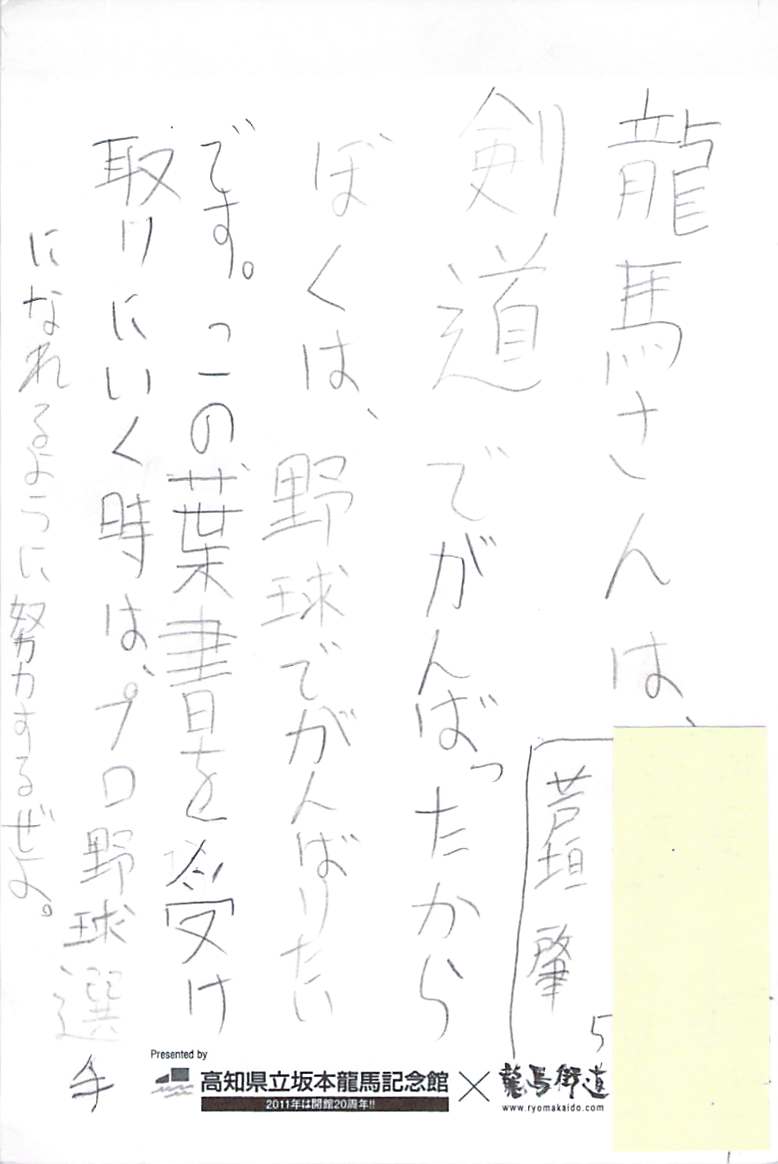 龍馬さんは、
剣道でがんばったから
ぼくは、野球でがんばりたい
です。この葉書を受け
取りにいく時は、プロ野球選手
になれるように努力するぜよ。
芦垣 肇
5
Presented by
高知県立坂本龍馬記念館
2011年は開館20周年!!
×
龍馬街道
www.ryomakaido.com